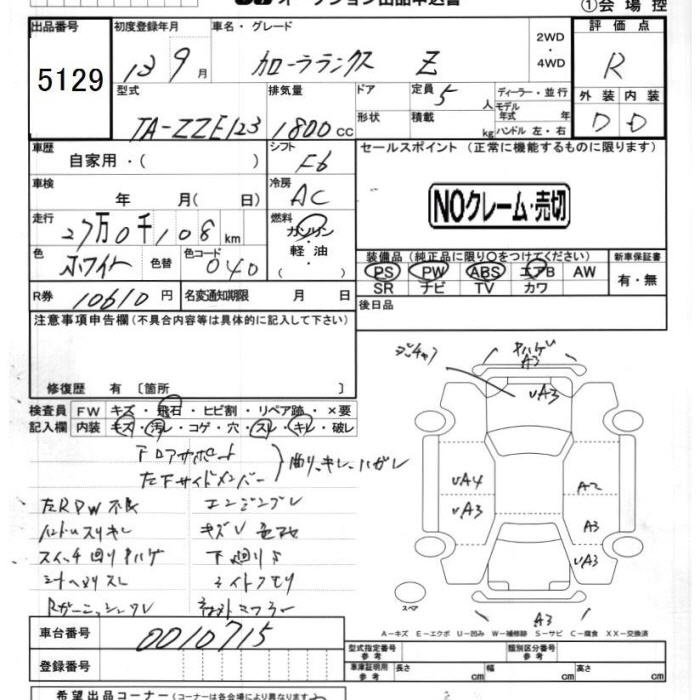 オークション出品申込書
①会場控
出品番号 初度登録年月 車名・グレード 評価点
5129 13年9月 カローラランクス Z 2WD・4WD R
型式 排気量 ドア 定員 ディーラー・並行 外装 内装
TA-ZZE123 1800cc 5人 モデル年式 年 D D
形状 積載 kg ハンドル 左・右
車歴 シフト セールスポイント (正常に機能するものに限ります)
自家用・( ) F6
車検 冷房
年 月( 日) AC NOクレーム・売切
走行 燃料
27万0千108km ガソリン・軽油・( )
色 色替 色コード 装備品 (純正品に限り○をつけてください) 新車保証書
ホワイト 040 PS PW ABS エアB AW 有・無
SR ナビ TV カワ
R券 10610円 名変通知期限 月 日 後日品
注意事項申告欄 (不具合内容等は具体的に記入して下さい)
修復歴 有〔箇所 〕
検査員 FW キズ・飛石・ヒビ割・リペア跡・×要
記入欄 内装 キズ・汚レ・コゲ・穴・スレ・キレ・破レ
下ロアサポート
左下サイドメンバー
曲リ、キレ、ハガレ
左RPW不良
キズU色アセ
下廻りS
シートヘタリスレ
A3
UA3
UA4
UA3
A2
A3
UA3
スペア
A3
A-キズ E-エクボ U-凹み W-補修跡 S-サビ C-腐食 XX-交換済
車台番号 0010715
型式指定番号 参考 類別区分番号 参考
登録番号 車庫証明用 参考 長さ cm 幅 cm 高さ cm
希望出品コーナー (出品コーナーは各会場により異なります)